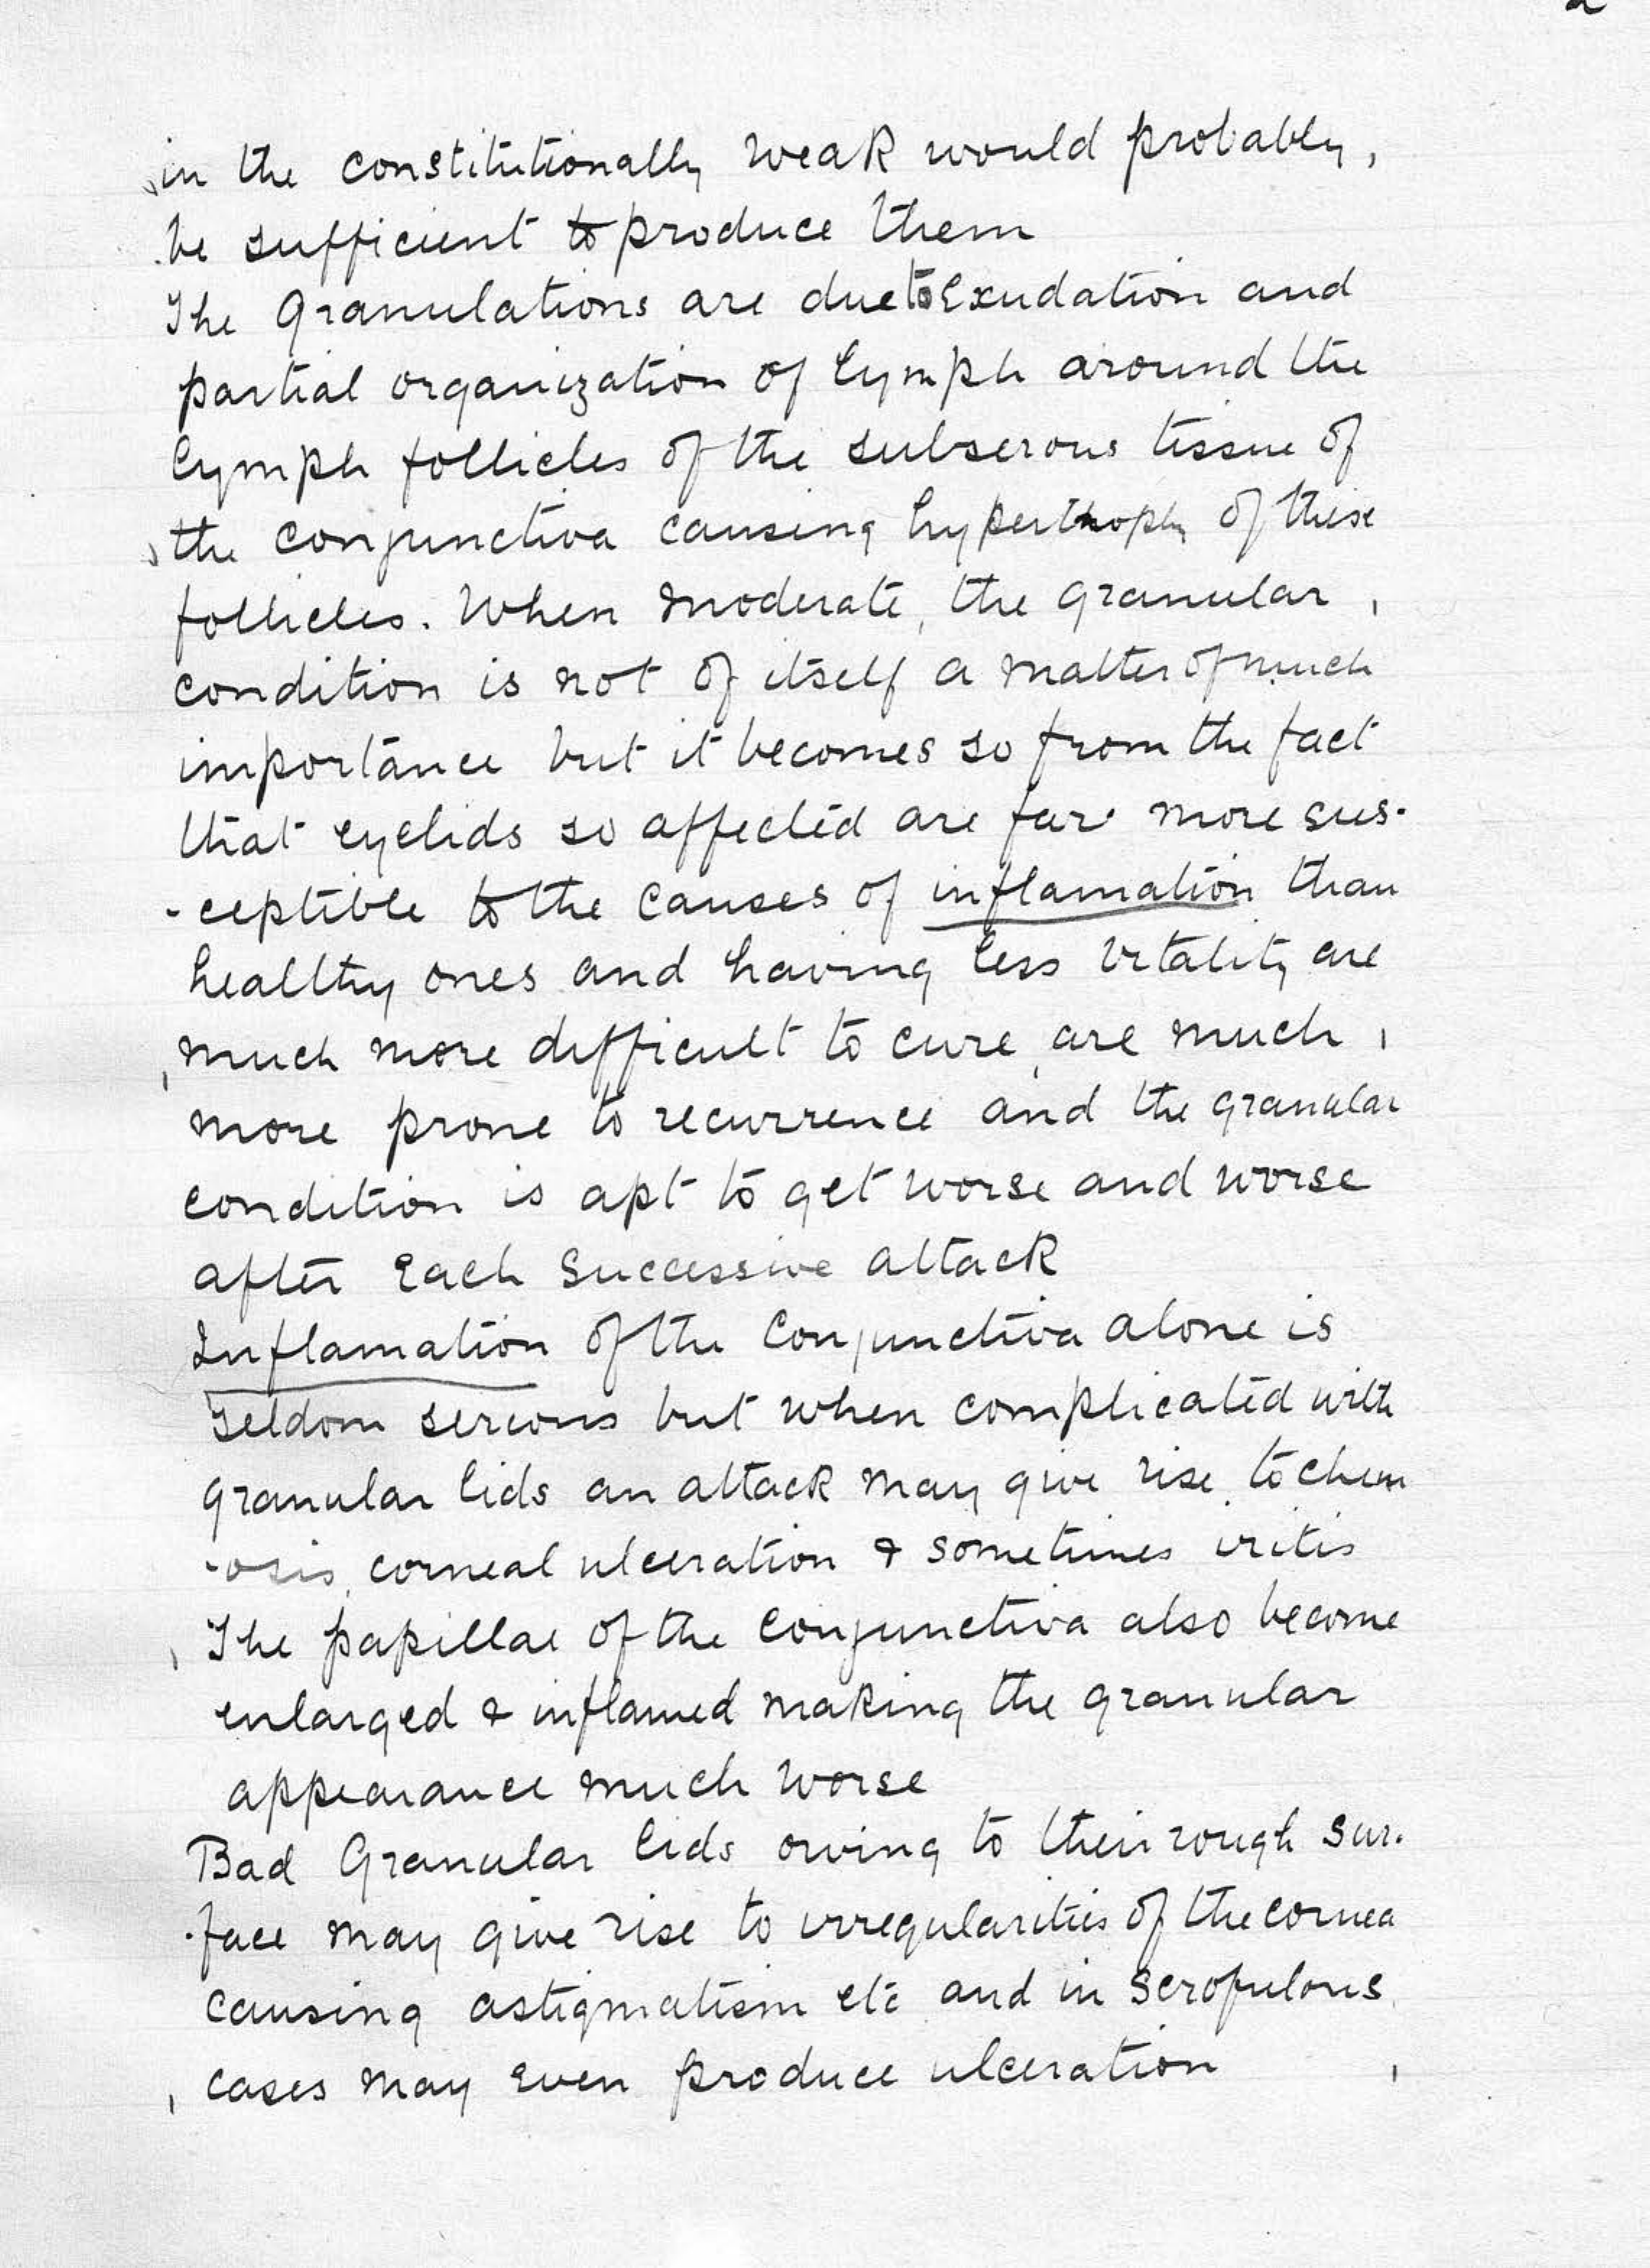 in the constitutionally weak would probably,
be sufficient to produce them
The Granulations are due to Exudation and
partial organization of lymph around the
lymph follicles of the subserous tissue of
the conjunctiva causing hyperthophy of these
follicles. When moderate, the granular
condition is not of itself a matter of much
importance but it becomes so from the fact
that eyelids so affected are far more sus-
-ceptible to the causes of inflamation than
healthy ones and having less vitality are
much more difficult to cure, are much
more prone to recurrence and the granular
condition is apt to get worse and worse
after Each Successive attack
Inflamation of the Conjunctiva alone is
Seldom serious but when complicated with
granular lids an attack may give rise to chem
-osis, corneal ulceration & sometimes iritis
The papillae of the Conjunctiva also become
enlarged & inflamed making the granular
appearance much worse
Bad Granular lids owing to their rough sur-
-face may give rise to irregularities of the cornea
causing astigmatism etc and in Scrofulous
cases may even produce ulceration